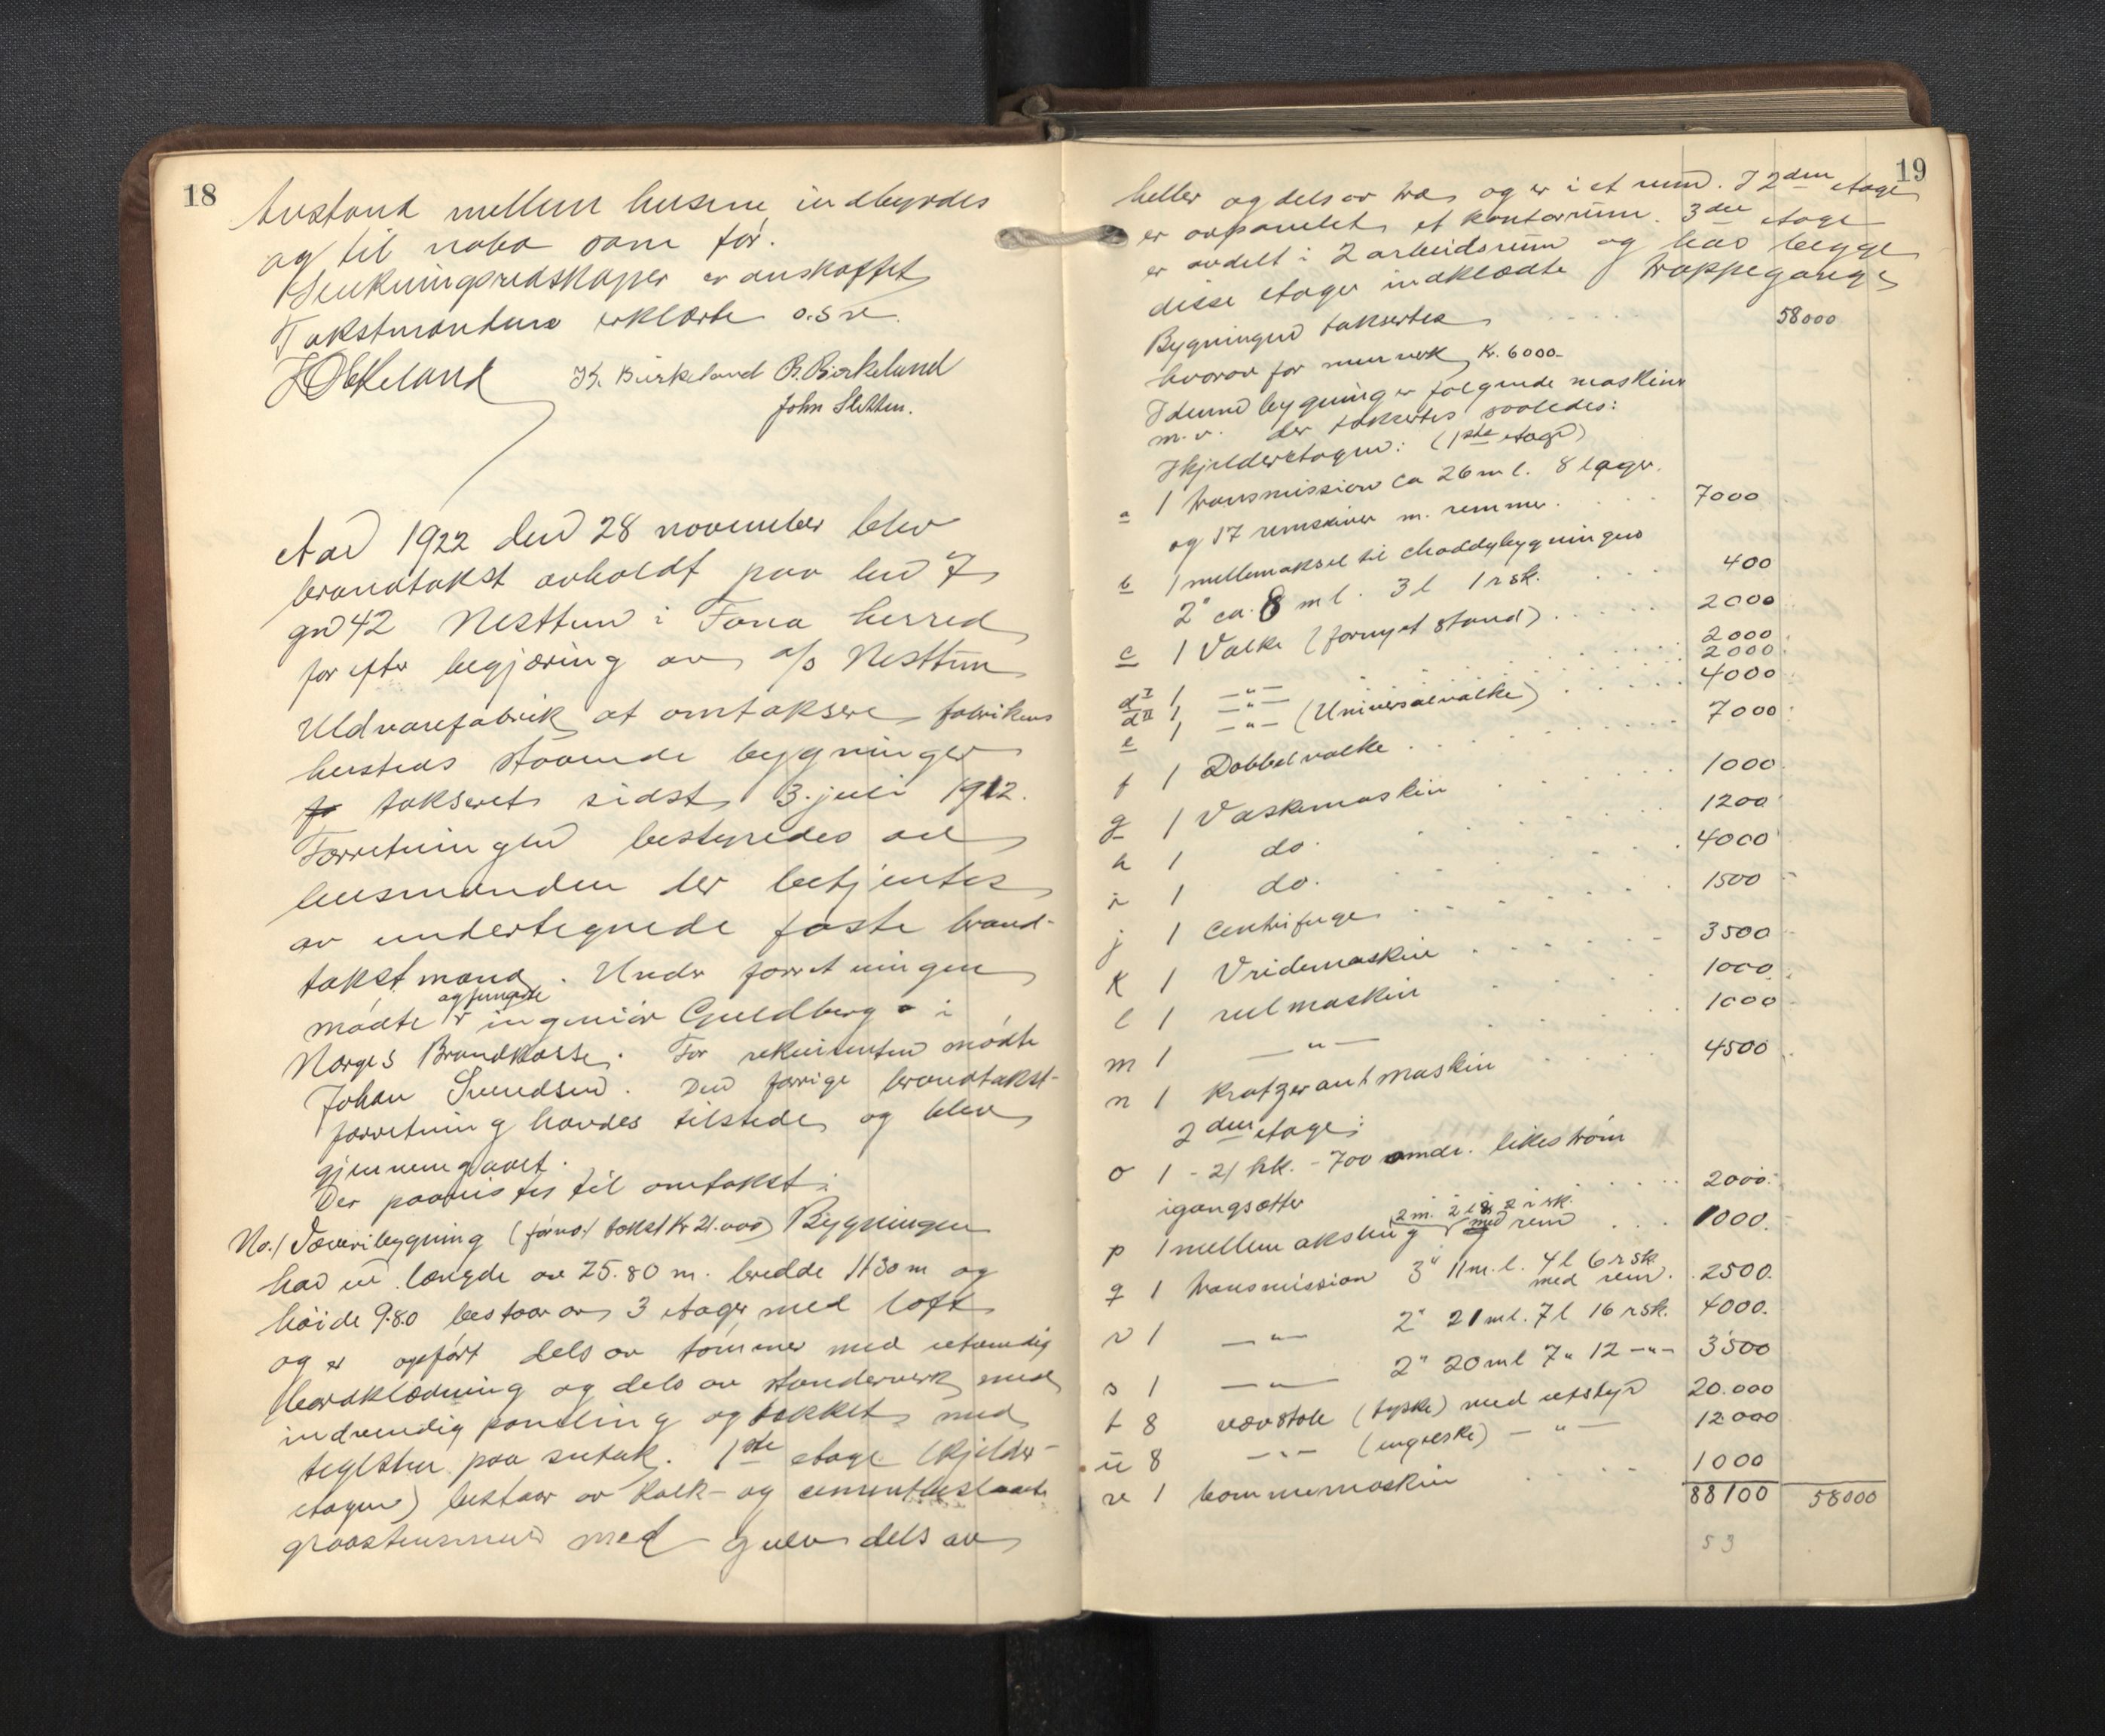 18
Avstand mellem husene indbyrdes
og til nabo som før.
Slukningsredskaper er anskaffet
Takstmændene erklærte o.s.v.
K. Birkeland B. Birkeland
John Sletten.
Aar 1922 den 28 november blev
brandtakst avholdt paa br no 7
gno 42 Nesttun i Fana herred
for efter begjæring av a/s Nesttun
Uldvarefabrik at omtaksere fabrikens
husteds staaende bygninger
takseret sidst 3. juli 1912.
Forretningen bestyredes av
lensmanden der betjentes
av undertegnede faste brand-
takstmænd. Under forretningen
og fungerte
mødte ingeniør Guldberg i
Norges Brandkasse. For rekvirenten mødte
Johan Svendsen. Den forrige brandtakst-
forretning havdes tilstede og blev
gjennemgaaet.
Der paavistes til omtakst:
No. 1 Væveribygning (før no. 1 takst Kr 21.000) Bygningen
har en længde av 25.80 m. bredde 11.30 m og
høide 9.80 bestaar av 3 etager med loft
og er opført dels av tømmer med utvendig
bordklædning og dels av standerverk med
indvendig paneling og tækket med
teglsten paa sutak. 1ste etage (kjelder-
etagen) bestaar av kalk- og cementbeslaaet
graastensmur med gulv dels av
19
heller og dels av træ og er i et rum. I 2den etage
er avpanelet et kontorrum. 3die etage
er avdelt i 2 arbeidsrum og har begge
disse etager indklædte trappegange
Bygningen takseres . . . . 58000
hvorav for murverk Kr. 6000-
I denne bygning er følgende maskiner
m.v. der takseres saaledes:
I kjelderetagen: (1ste etage)
a 1 transmission ca 26 m l. 8 lager.
og 17 remskiver m. remmer. . . . 7000
b 1 mellemaksel til shoddybygningen
2" ca. 8 m l. 3 l 1 r sk. . . . 400
c 1 Valke (fornyet stand) . . . . . 2000
d I 1 — " — . . . 2000
d II 1 — " — . . . 2000
e 1 — " — (Universalvalke) . . . 4000
f 1 Dobbelvalke . . . . . 7000
g 1 Vaskemaskin . . . . 1000
h 1 do. . . . . 1200
i 1 do. . . . . 4000
j 1 Centrifuge . . . . . 1500
k 1 Vridemaskin . . . . . 3500
l 1 rulmaskin . . . 1000
m 1 — " — . . . 1000
n 1 Kratzerautmaskin . . . . 4500
2den etage:
o 1 - 21 hk. - 700 omdr. likestrøm
igangsætter . . . . 2000.
2 m. 2 l & 2 r sk.
p 1 mellemaksling med rem . . . 1000.
q 1 transmission 3" 11 m. l. 4 l 6 r sk
med rem. 2500.
r 1 — " — 2" 21 m l. 7 l 16 r sk. 4000.
s 1 — " — 2" 20 m l 7 " 12 — " — 3500
t 8 vævstole (tyske) med utstyr 20.000
u 8 — " — (engelske) — " — 12000
v 1 bommemaskin . . . . 1000
88100 58000
53